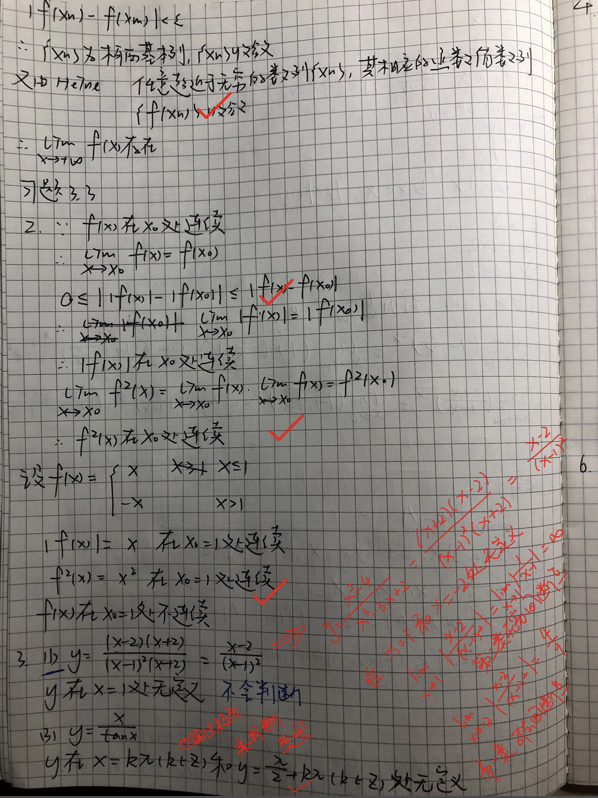 |f(xn) - f(xm)| < ε
∴ {f(xn)}为柯西基本列, {f(xn)}收敛
又由Heine 任意趋近于无穷的数列{xn}, 其相应的函数值数列
{f(xn)}收敛
∴ lim x→+∞ f(x)存在
习题3.3
2. ∵ f(x)在x0处连续
∴ lim x→x0 f(x) = f(x0)
0 ≤ ||f(x)| - |f(x0)|| ≤ |f(x) - f(x0)|
∴ lim x→x0 |f(x)| = |f(x0)|
∴ |f(x)|在x0处连续
lim x→x0 f²(x) = lim x→x0 f(x) · lim x→x0 f(x) = f²(x0)
∴ f²(x)在x0处连续
设f(x) = { x x≤1
-x x>1
|f(x)| = x 在x0=1处连续
f²(x) = x² 在x0=1处连续
f(x)在x0=1处不连续
3. (1) y = (x-2)(x+2)/(x-1)²(x+2) = x-2/(x-1)²
y在x=1处无定义 不会判断
(3) y = x/tanx
y在x=kπ(k∈Z)和y=π/2+kπ(k∈Z)处无定义
y = x²-4/x³-3x+2 = (x+2)(x-2)/(x-1)²(x+2) = x-2/(x-1)²
在x=1和x=-2处无定义
lim x→1
= ∞
lim x→-2
= 4/9